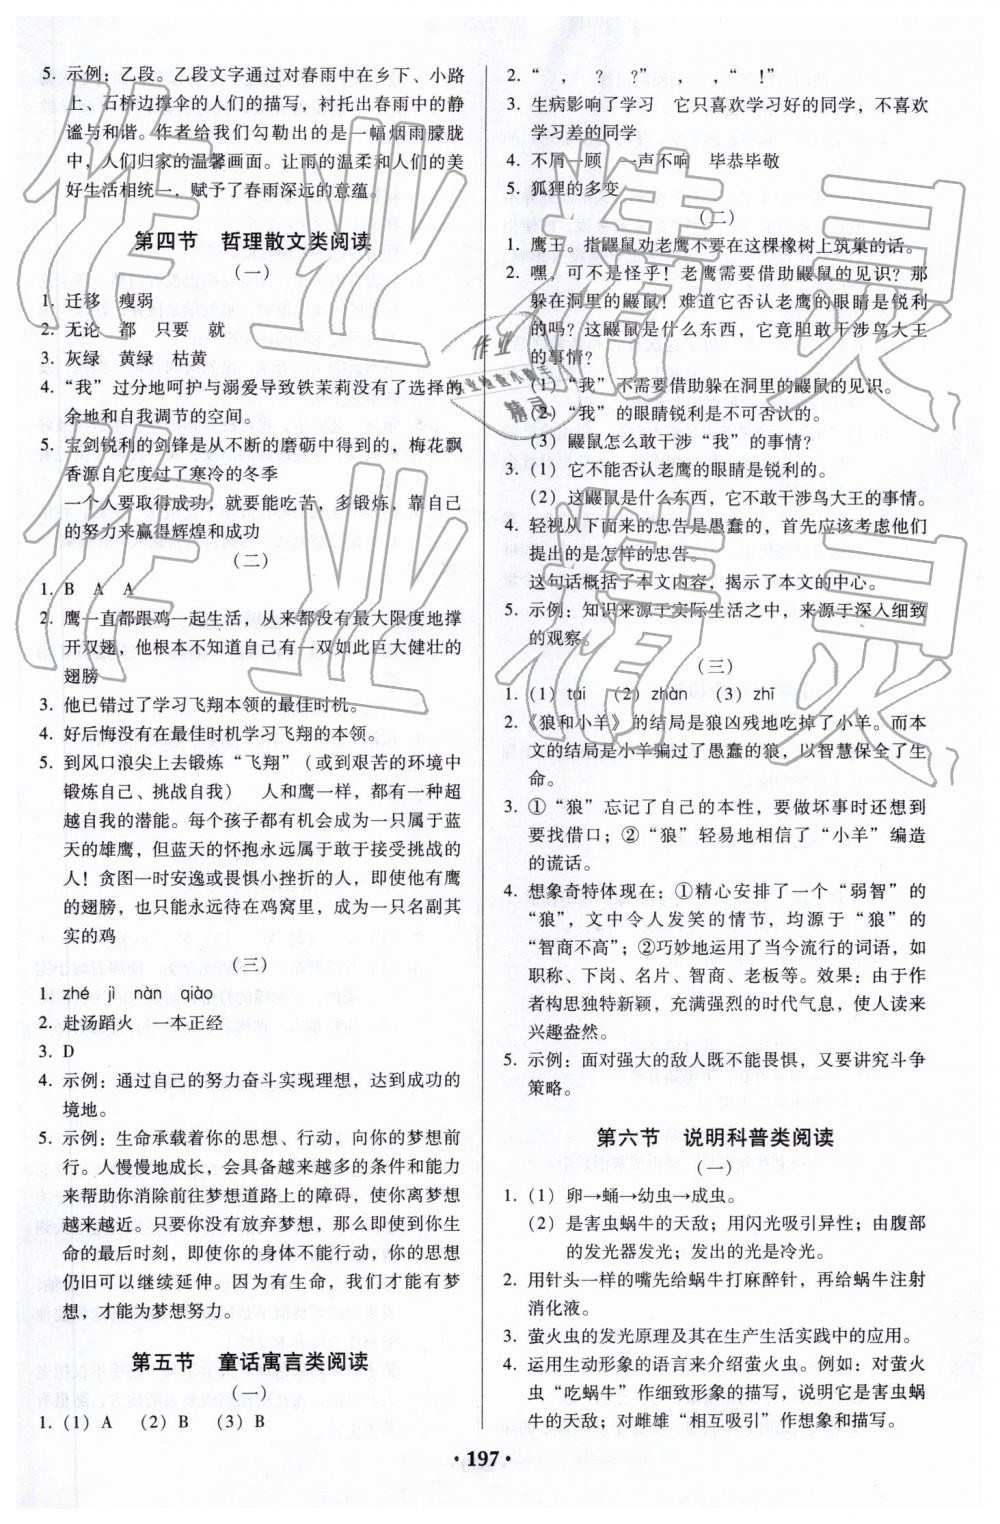 5. 示例：乙段。乙段文字通过对春雨中在乡下、小路
上、石桥边撑伞的人们的描写，衬托出春雨中的静
谧与和谐。作者给我们勾勒出的是一幅烟雨朦胧
中，人们归家的温馨画面。让雨的温柔和人们的美
好生活相统一，赋予了春雨深远的意蕴。
第四节 哲理散文类阅读
（一）
1. 迁移 瘦弱
2. 无论 都 只要 就
3. 灰绿 黄绿 枯黄
4. “我”过分地呵护与溺爱导致铁茉莉没有了选择的
余地和自我调节的空间。
5. 宝剑锐利的剑锋是从不断的磨砺中得到的，梅花飘
香源自它度过了寒冷的冬季
一个人要取得成功，就要能吃苦，多锻炼，靠自己
的努力来赢得辉煌和成功
（二）
1. B A A
2. 鹰一直都跟鸡一起生活，从来都没有最大限度地撑
开双翅，他根本不知道自己有一双如此巨大健壮的
翅膀
3. 他已错过了学习飞翔本领的最佳时机。
4. 好后悔没有在最佳时机学习飞翔的本领。
5. 到风口浪尖上去锻炼“飞翔”（或到艰苦的环境中
锻炼自己、挑战自我） 人和鹰一样，都有一种超
越自我的潜能。每个孩子都有机会成为一只属于蓝
天的雄鹰，但蓝天的怀抱永远属于敢于接受挑战的
人！贪图一时安逸或畏惧小挫折的人，即使他有鹰
的翅膀，也只能永远待在鸡窝里，成为一只名副其
实的鸡
（三）
1. zhé jì nàn qiào
2. 赴汤蹈火 一本正经
3. D
4. 示例：通过自己的努力奋斗实现理想，达到成功的
境地。
5. 示例：生命承载着你的思想、行动，向你的梦想前
行。人慢慢地成长，会具备越来越多的条件和能力
来帮助你消除前往梦想道路上的障碍，使你离梦想
越来越近。只要你没有放弃梦想，那么即使到你生
命的最后时刻，即使你的身体不能行动，你的思想
仍旧可以继续延伸。因为有生命，我们才能有梦
想，才能为梦想努力。
第五节 童话寓言类阅读
（一）
1. (1) A (2) B (3) B
2. “ ， ？ ？” ， ，“ ！”
3. 生病影响了学习 它只喜欢学习好的同学，不喜欢
学习差的同学
4. 不屑一顾 一声不响 毕恭毕敬
5. 狐狸的多变
（二）
1. 鹰王。指鼹鼠劝老鹰不要在这棵橡树上筑巢的话。
2. 嘿，可不是怪乎！老鹰需要借助鼹鼠的见识？那
躲在洞里的鼹鼠！难道它否认老鹰的眼睛是锐利
的吗？这鼹鼠是什么东西，它竟胆敢干涉鸟大王
的事情？
(1) “我”不需要借助躲在洞里的鼹鼠的见识。
(2) “我”的眼睛锐利是不可否认的。
(3) 鼹鼠怎么敢干涉“我”的事情？
3. (1) 它不能否认老鹰的眼睛是锐利的。
(2) 这鼹鼠是什么东西，它不敢干涉鸟大王的事情。
4. 轻视从下面来的忠告是愚蠢的，首先应该考虑他们
提出的是怎样的忠告。
这句话概括了本文内容，揭示了本文的中心。
5. 示例：知识来源于实际生活之中，来源于深入细致
的观察。
（三）
1. (1) tái (2) zhàn (3) zhī
2.《狼和小羊》的结局是狼凶残地吃掉了小羊。而本
文的结局是小羊骗过了愚蠢的狼，以智慧保全了生
命。
3. ①“狼”忘记了自己的本性，要做坏事时还想到
要找借口；②“狼”轻易地相信了“小羊”编造
的谎话。
4. 想象奇特体现在：①精心安排了一个“弱智”的
“狼”，文中令人发笑的情节，均源于“狼”的
“智商不高”；②巧妙地运用了当今流行的词语，如
职称、下岗、名片、智商、老板等。效果：由于作
者构思独特新颖，充满强烈的时代气息，使人读来
兴趣盎然。
5. 示例：面对强大的敌人既不能畏惧，又要讲究斗争
策略。
第六节 说明科普类阅读
（一）
1. (1) 卵→蛹→幼虫→成虫。
(2) 是害虫蜗牛的天敌；用闪光吸引异性；由腹部
的发光器发光；发出的光是冷光。
2. 用针头一样的嘴先给蜗牛打麻醉针，再给蜗牛注射
消化液。
3. 萤火虫的发光原理及其在生产生活实践中的应用。
4. 运用生动形象的语言来介绍萤火虫。例如：对萤火
虫“吃蜗牛”作细致形象的描写，说明它是害虫蜗
牛的天敌；对雌雄“相互吸引”作想象和描写。
· 197 ·
作业精灵